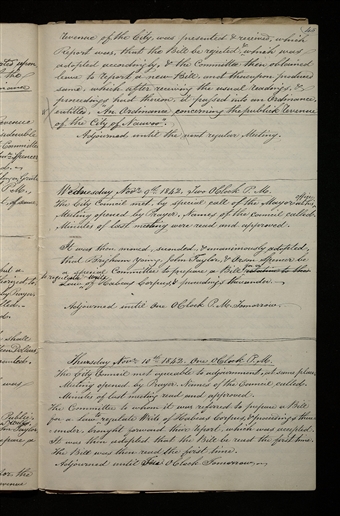 Revenue of the City, was presented & received, which
Report was, that the Bill be rejected, & which was
adopted accordingly, & the Committee then obtained
leave to report a new Bill and thereupon produced
same, which after receiving the usual readings, &
proceedings had thereon, it passed into an Ordinance,
entitled, "An Ordinance concerning the publick Revenue
of the City of Nauvoo."
Adjourned until the next regular Meeting.
Wednesday Novr. 9th. 1842. Two OClock P.M.
The City Council met, by special call of the Mayor, at his office
Meeting opened by Prayer, Names of the Council called.
Minutes of last meeting were read and approved.
It was then moved, seconded, & unanimously adopted,
that Brigham Young, John Taylor, & Orson Spencer be
a special Committee to prepare a Bill relative to the
to regulate writs
Law of Habeas Corpus, & proceedings thereunder.
Adjourned until One OClock P.M. Tomorrow.
Thursday Novr. 10th. 1842. One OClock P.M.
The City Council met agreeable to adjournment, at same place,
Meeting opened by Prayer. Names of the Council called.
Minutes of last meeting read and approved.
The Committee to whom it was referred to prepare a Bill
for a Law, regulate Writs of Habeas Corpus, & proceedings there-
under, brought forward their report, which was accepted.
It was then adopted that the Bill be read the first time.
The Bill was then read the first time.
Adjourned until OClock Tomorrow,